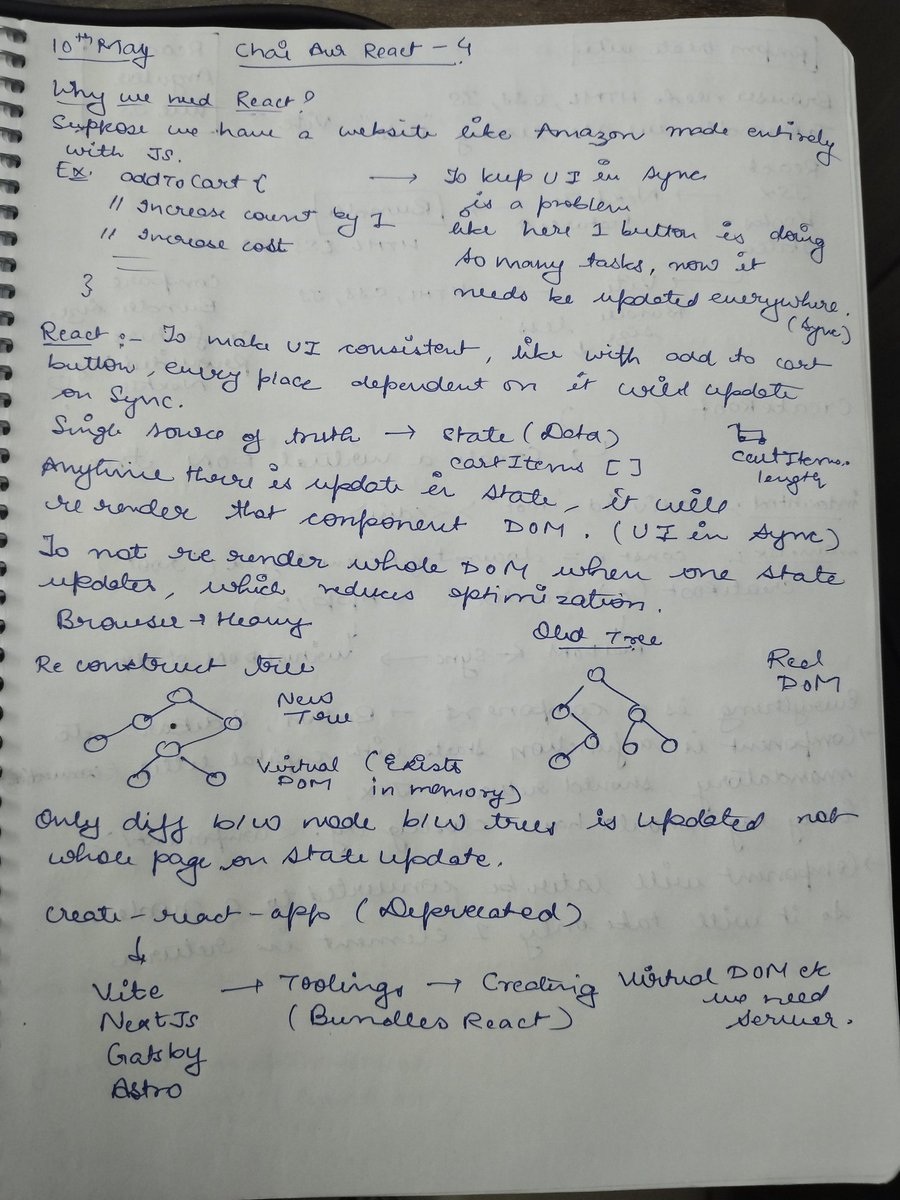 10th May Chai Aur React - 4
Why we need React?
Suppose we have a website like Amazon made entirely
with JS.
Ex. addToCart {
// Increase count by 1
// Increase cost
}
→ To keep UI in Sync
is a problem
like here 1 button is doing
so many tasks, now it
needs be updated everywhere.
(Sync)
React :- To make UI consistent, like with add to cart
button, every place dependent on it will update
on Sync.
Single source of truth → State (Data)
cartItems [ ]
cartItems.
length
Anytime there is update in State, it will
re render that component DOM. (UI in Sync)
To not re render whole DOM when one state
updates, which reduces optimization.
Browser → Heavy
Re construct tree
New
Tree
Virtual (Exists
DOM in memory)
Old Tree
Real
DOM
Only diff b/w node b/w trees is updated not
whole page on state update.
create-react-app (Deprecated)
↓
Vite → Toolings → Creating Virtual DOM
NextJs (Bundles React) we need
Gatsby server.
Astro